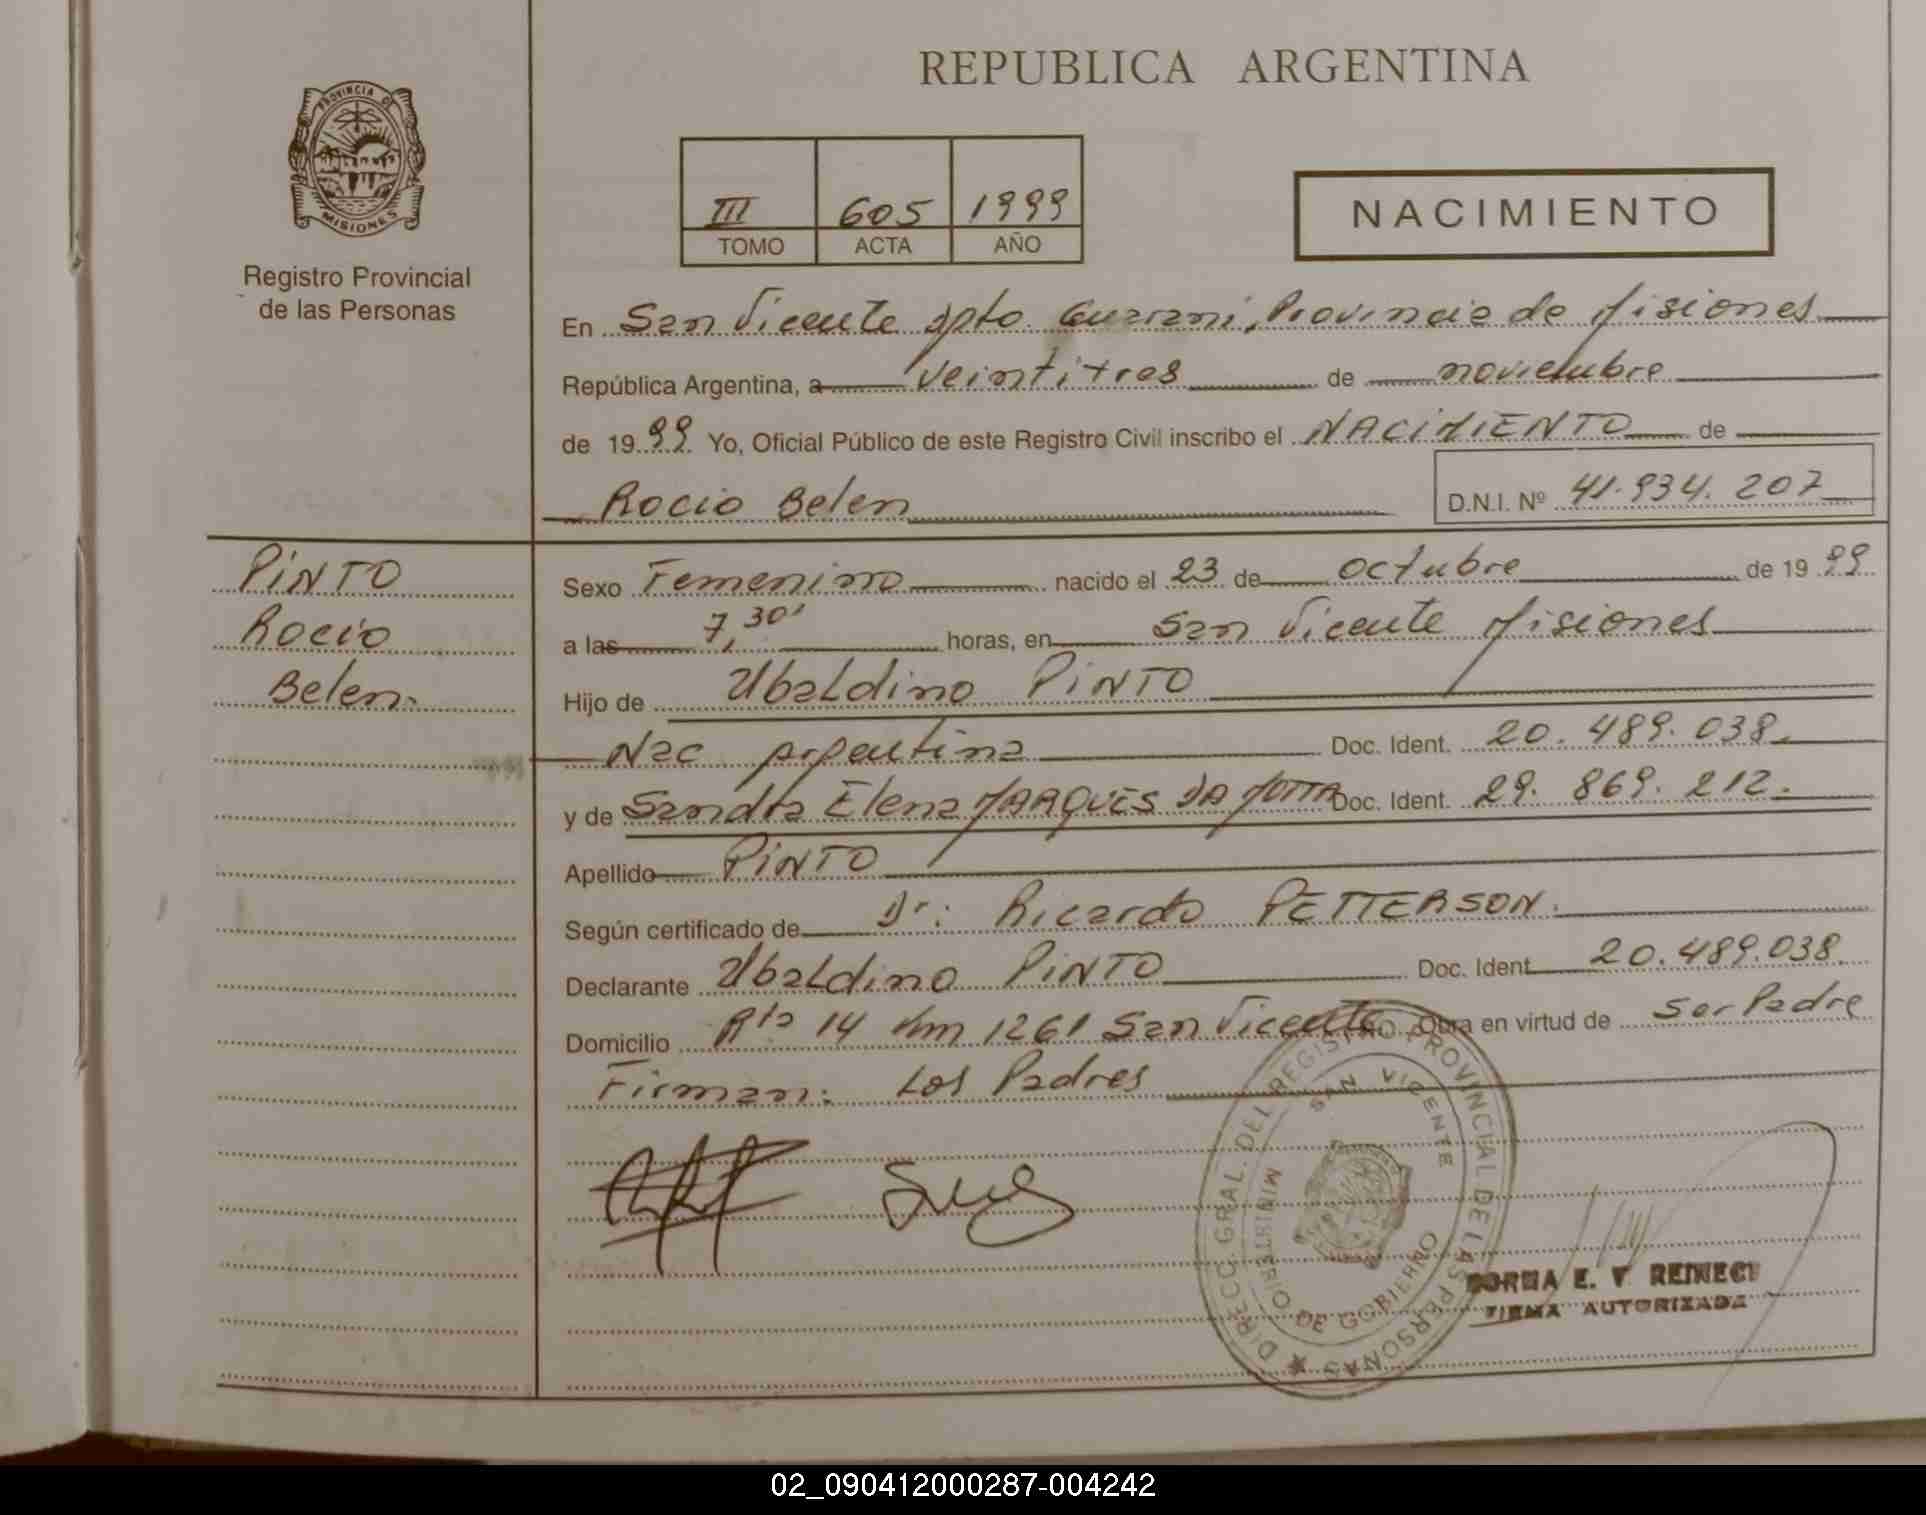 REPUBLICA ARGENTINA
PROVINCIA DE
MISIONES
Registro Provincial
de las Personas
III 605 1999
TOMO ACTA AÑO
NACIMIENTO
En San Vicente Dpto. Guarani, Provincia de Misiones
República Argentina, a veintitres de noviembre
de 1999 Yo, Oficial Público de este Registro Civil inscribo el NACIMIENTO de
Rocio Belen D.N.I. Nº 41.934.207
PINTO
Rocio
Belen.
Sexo Femenino nacido el 23 de octubre de 1999
a las 7,30' horas, en San Vicente Misiones
Hijo de Ubaldino PINTO
Nac argentina Doc. Ident. 20.489.038.
y de Sandra Elena MARQUES DA MOTTA Doc. Ident. 29.869.212.
Apellido PINTO
Según certificado de Dr: Ricardo PETTERSON.
Declarante Ubaldino PINTO Doc. Ident. 20.489.038.
Domicilio Rta 14 Km 1261 San Vicente. Obra en virtud de Ser Padre
Firman: Los Padres
DIRECC. GRAL. DEL REGISTRO PROVINCIAL DE LAS PERSONAS
SAN VICENTE
MINISTERIO DE GOBIERNO
NORMA E. V REINECK
FIRMA AUTORIZADA
02_090412000287-004242